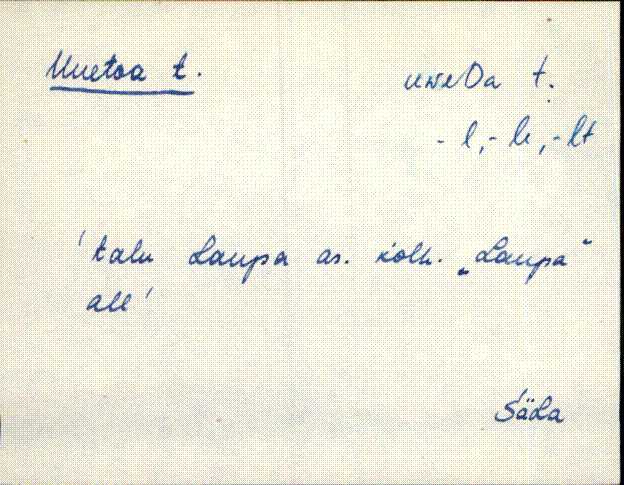 Uuetoa t.
uweDa t.
- l, - le, - lt
'talu Laupa as. kolh. „Laupa"
all'
Säda